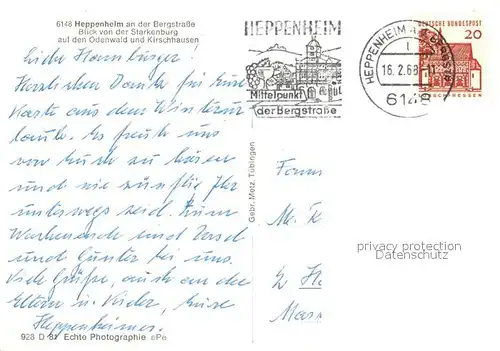 6148 Heppenheim an der Bergstraße
Blick von der Starkenburg
auf den Odenwald und Kirschhausen
HEPPENHEIM
Mittelpunkt
der Bergstraße
HEPPENHEIM
16.2.68
6148
DEUTSCHE BUNDESPOST
20
Liebe Hamburger!
Herzlichen Dank für Eure
Karte aus dem Winterur
laub. Es freute uns
von Euch zu hören
und wie Ihr
unterwegs seid. Zum
Wochenende sind
und Günter bei uns.
Viele Grüße, auch an die
Eltern u. Kinder, Eure
Heppenheimer.
928 D 81 Echte Photographie ePe
Gebr. Metz, Tübingen
Fam
privacy protection
Datenschutz